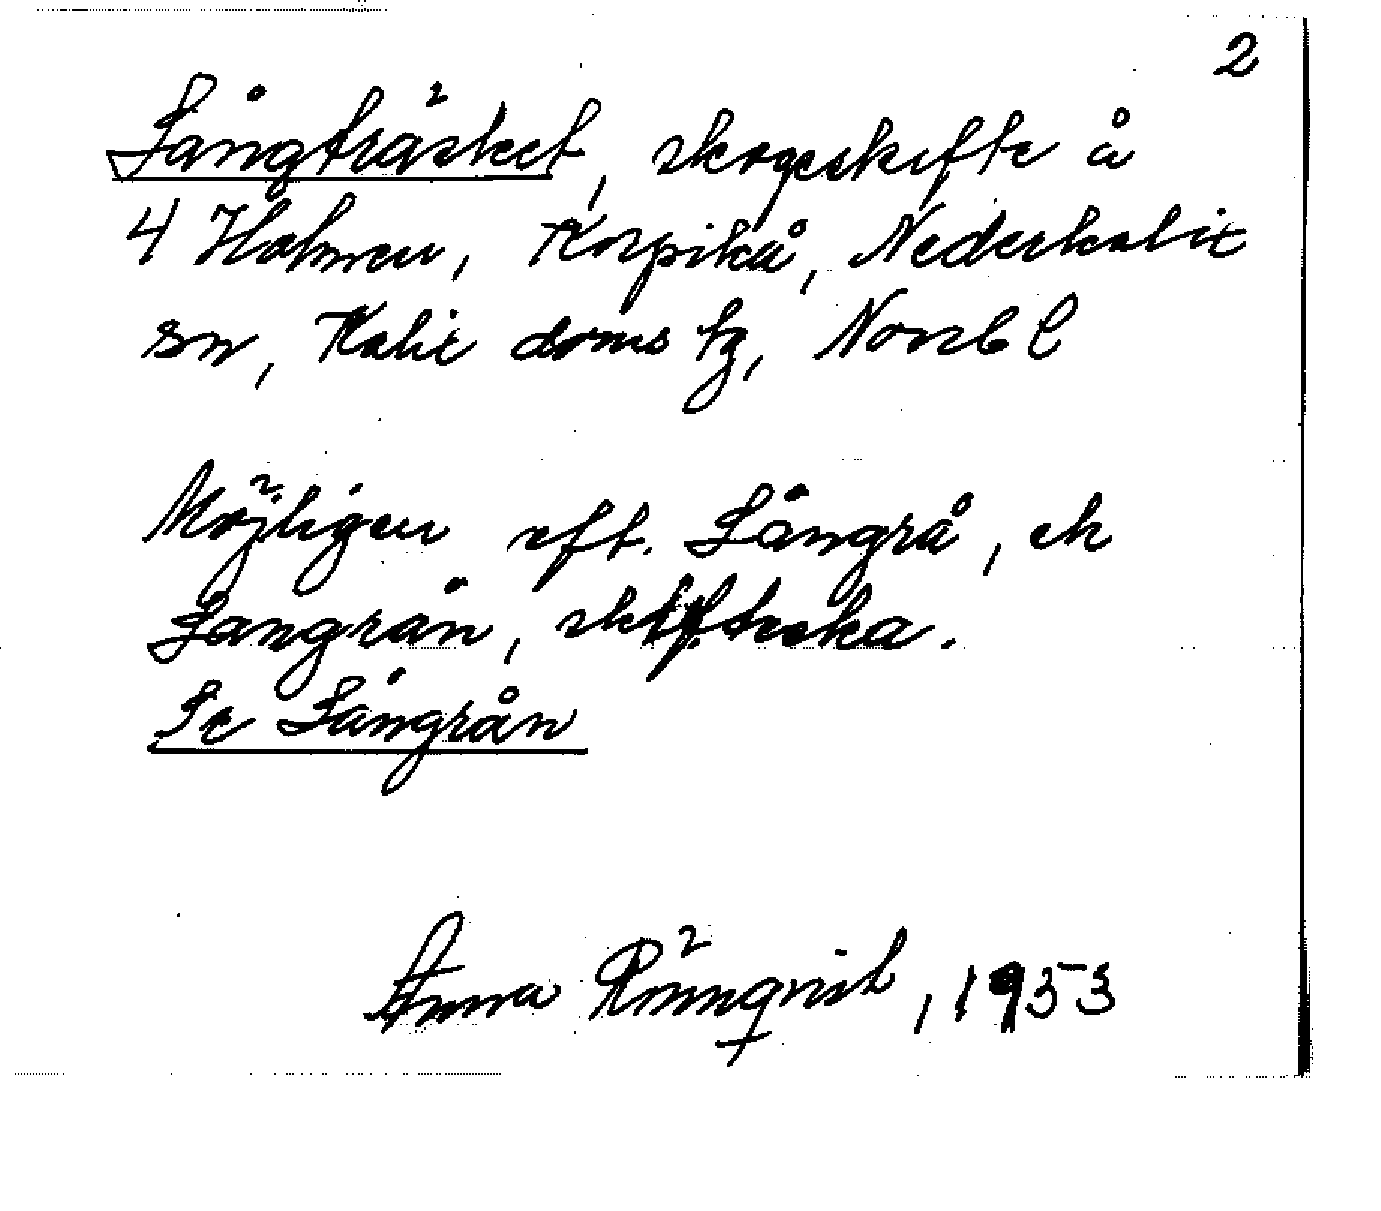 2
Långträsket, skogsskifte å
4 Holmen, Korpikå, Nederkalix
sn, Kalix doms tg, Norrb l
Möjligen eft. Långrå, ek
Långrån, skifteska.
Se Långrån
Anna Rönnqvist, 1953